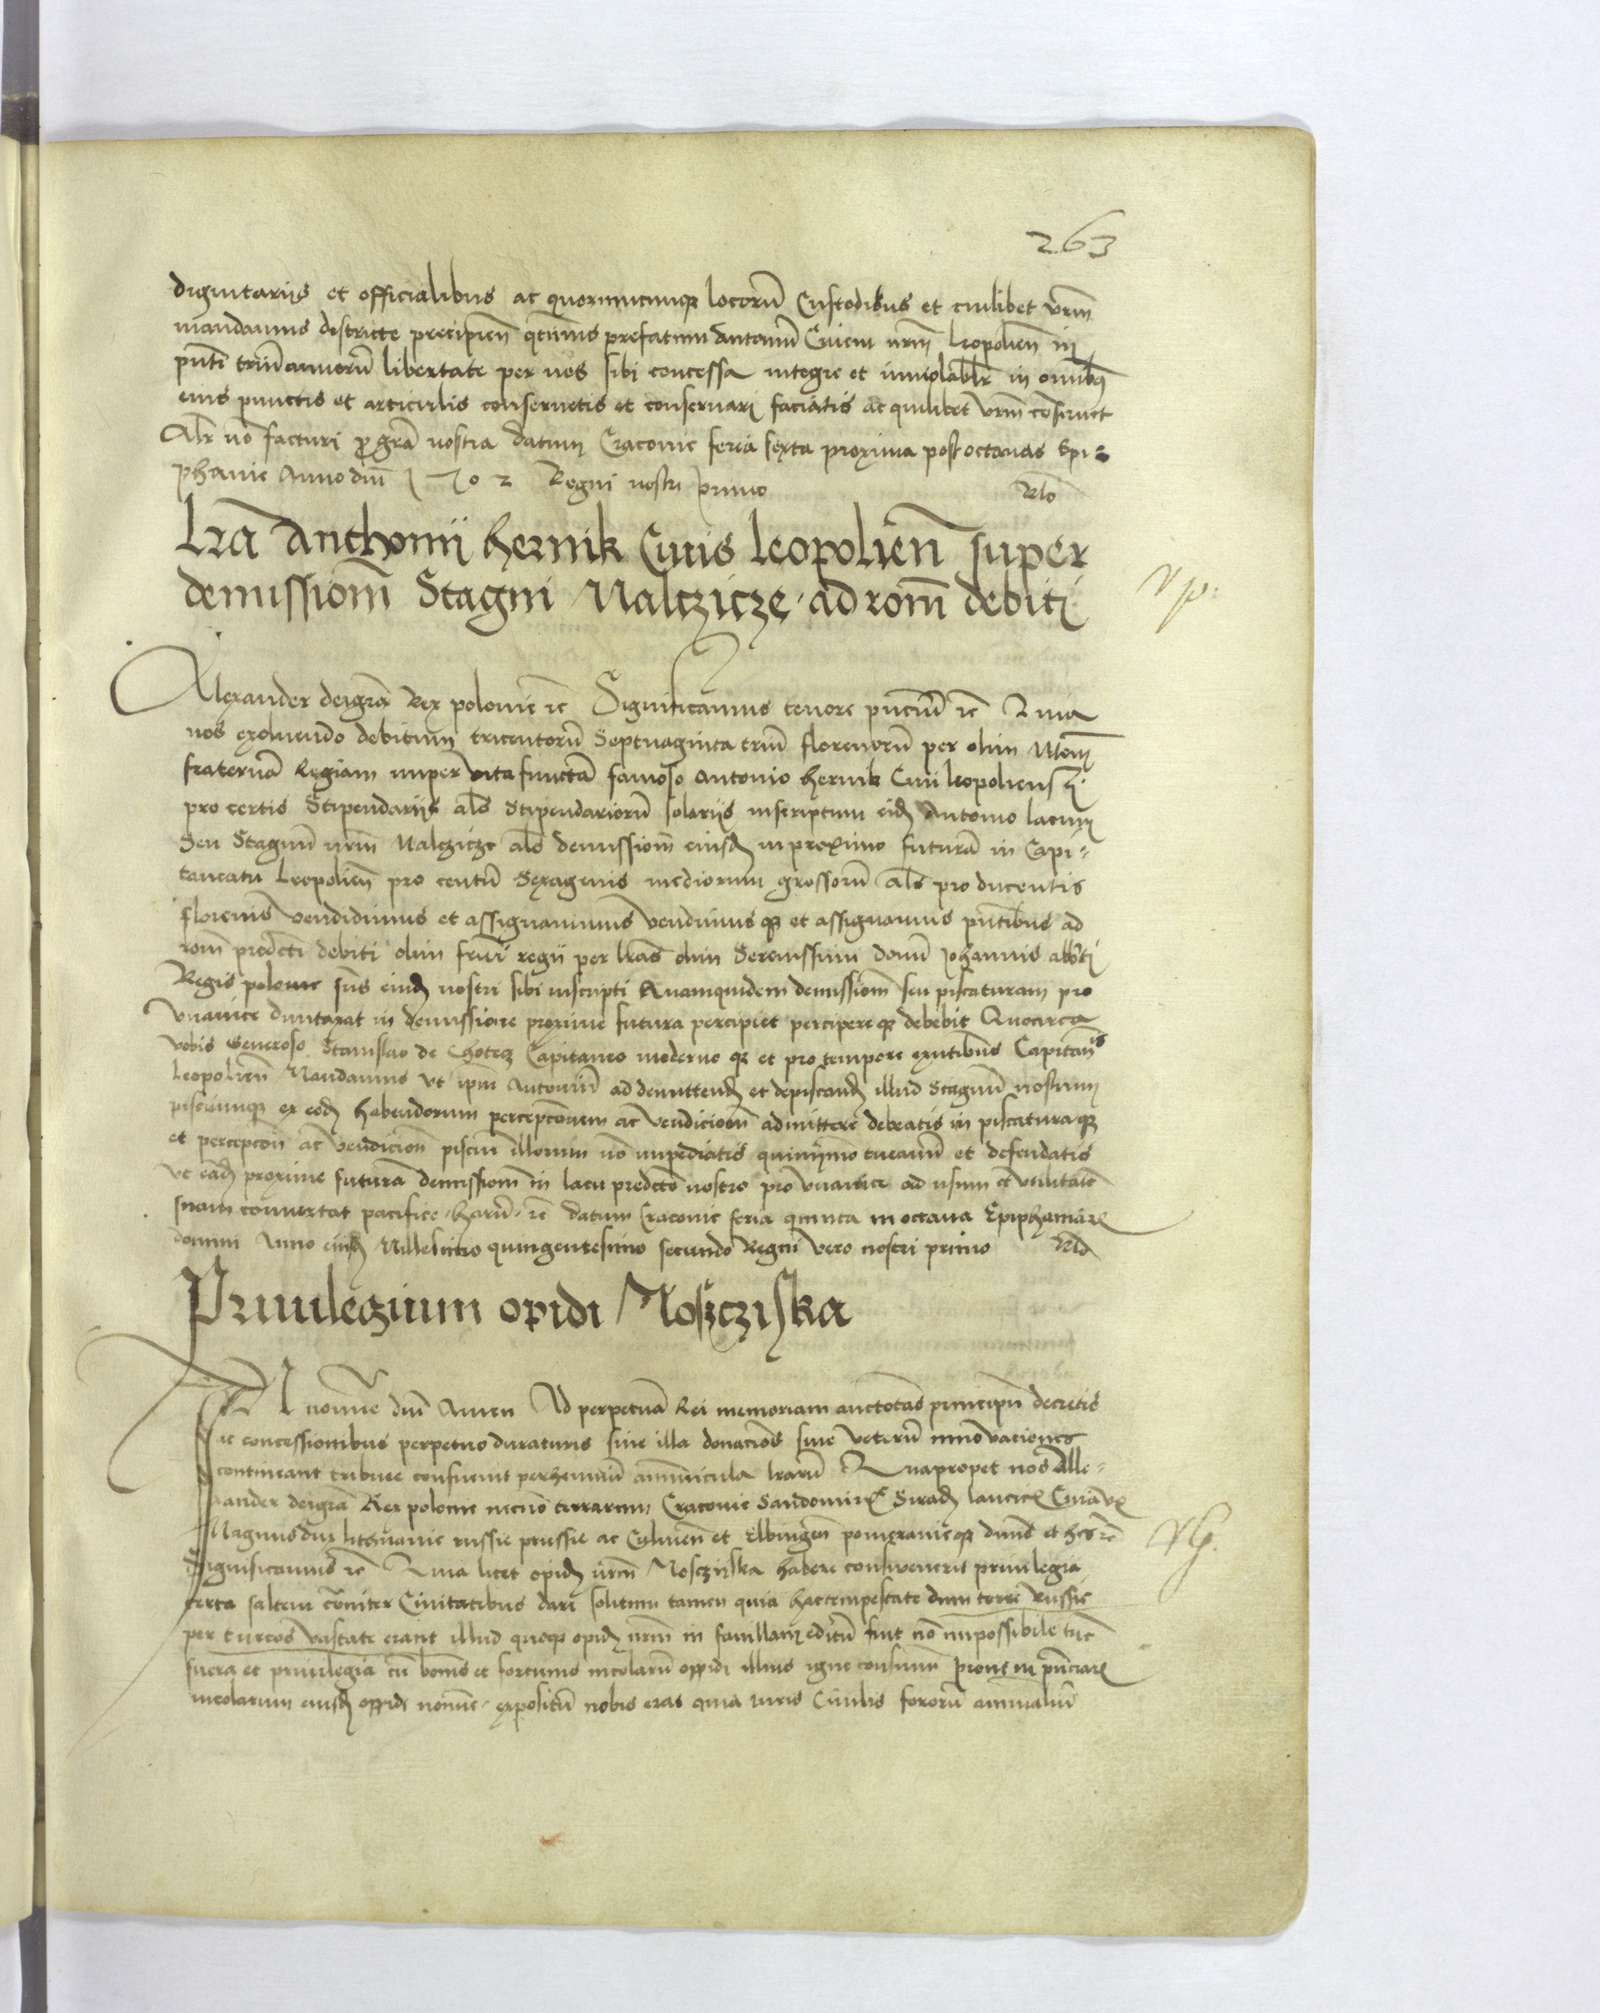 263
dignitariis et officialibus ac quorumcumque locorū Custodibus et cuilibet vrm̄
mandamus districte precipien̄ qtenus prefatum Antoniū Ciuem nrm̄ Leopolien̄ in
pn̄ti triū annorū libertate per nos sibi concessa integre et inuiolabilr̄ in omnibꝫ
eius punctis et articulis conseruetis et conseruari faciatis ac quilibet vrm̄ cōseruet
Alr̄ nō facturi ꝓ grā nostra datum Cracouie feria sexta proxima post octauas Epi-
phanie Anno dnī 1502 Regni nostri primo Rlō
Lrā Anthonii hernik Ciuis Leopolien̄ super
demissionē Stagni Malczicze ad ronē debiti
Alexander dei grā Rex polonie rc̄ Significamus tenore pn̄ciū rc̄ Quia
nos exoluendo debitum tricentorū Septuaginta triū florenorū per olim Mtem̄
fraternā Regiam nuper vita functā famoso Antonio hernik Ciui leopoliensi
pro certis Stipendariis als̄ Stipendariorū solariis inscriptum eidē Antonio lacum
Seu Stagnū nrm̄ Malczicze als̄ demissionē eiusdē in proximo futurā in Capi-
taneatu Leopolien̄ pro centū Sexagenis mediorum grossorū als̄ pro ducentis
florenis vendidimus et assignauimus vendimusqꝫ et assignamus pn̄tibus ad
ronē predcti debiti olim frn̄i regii per lrās olim Serenissimi domī Johannis albti
Regis polonie frīs eiusdē nostri sibi inscripti Quamquidem demissionē seu piscaturam pro
vna vice duntaxat in demissione proxime futura percipiet percipereqꝫ debebit Quocirca
vobis Generoso Stanislao de Chotecz Capitaneo moderno qꝫ et pro tempore exn̄tibus Capitan̄is
Leopolien̄ Mandamus vt ipm̄ Antoniū ad demittendē et depiscandē illud Stagnū nostrum
pisciumqꝫ ex eodē habendorum percepcōnem ac vendicionē admittere debeatis in piscaturaqꝫ
et percepcōn̄ ac vendicionē pisciū illorum nō impediatis quinymmo tueamī et defendatis
vt eādē proxime futurā demissionē in lacu predcto nostro pro vna vice ad usum et vtilitatē
suam conuertat pacifice harū rc̄ datum Cracouie feria quinta in octaua Epiphaniarꝫ
domini Anno eiusdē Millesimo quingentesimo secundo Regni vero nostri primo Rlō
Priuilegium opidi Mosczıska
IN nomine dnī Amen Ad perpetuā Rei memoriam auctotas principū decretis
ac concessionibus perpetuo duraturis siue illa donaciōs siue veterū innouaciones
contineant tribuere consueuit perhenniū amminicula lrarū Quapropter nos Alle-
xander dei grā Rex polonie necnō terrarum Cracouie Sandomirꝫ Siradē lancicꝫ Cuiauꝫ
Magnus dux lithuanie russie prussie ac Culmen̄ et Elbingen̄ pomeranieqꝫ dn̄s et hes rc̄
Significamus rc̄ Quia licet opidē nrm̄ Mosczyska habere consweuerit priuilegia
certa saltem cōmiter Ciuitatibus dari solitum tamen quia hac tempestate dum terre russie
per turcos vastate erant illud quoqꝫ opidē nrm̄ in fauillam editū fuit nō impossibile tūc
fuerat et priuilegia cū bonis et fortunis incolarū oppidi illius igne consumi prout in pn̄ciarꝫ
incolarum eiusdē oppidi nomine expositū nobis erat quia iuris Ciuilis fororū annualiū